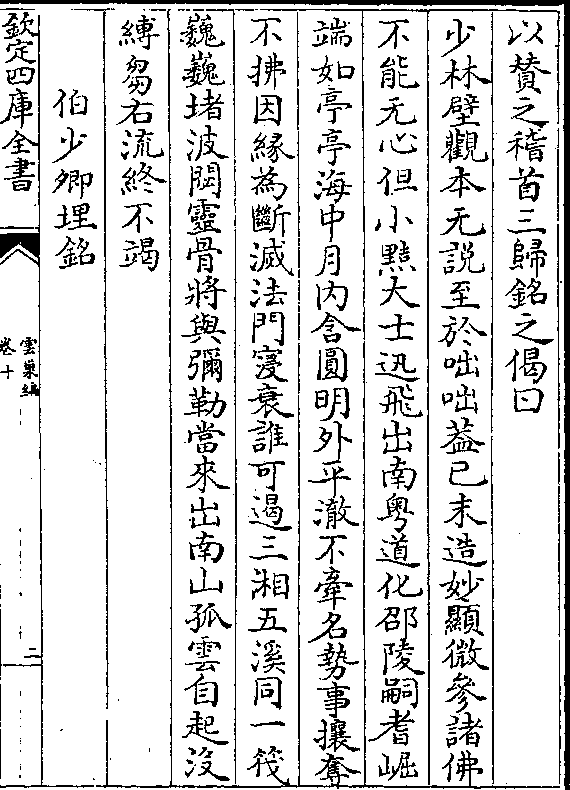 以贊之稽首三歸銘之偈曰
少林壁觀本无說至於咄咄葢已末造妙顯微參諸佛
不能无心但小黠大士迅飛出南粤道化邵陵嗣耆崛
端如亭亭海中月内含圓明外平澈不牽名勢事攘奪
不拂因緣為斷滅法門寖衰誰可遏三湘五溪同一筏
巍巍堵波閟靈骨將與彌勒當來出南山孤雲自起没
縛芻右流終不竭
伯少卿埋銘
欽定四庫全書
雲巢編
卷十
二